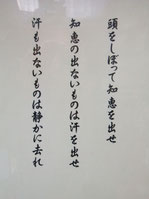 頭をしぼって知恵を出せ
知恵の出ないものは汗を出せ
汗も出ないものは静かに去れ